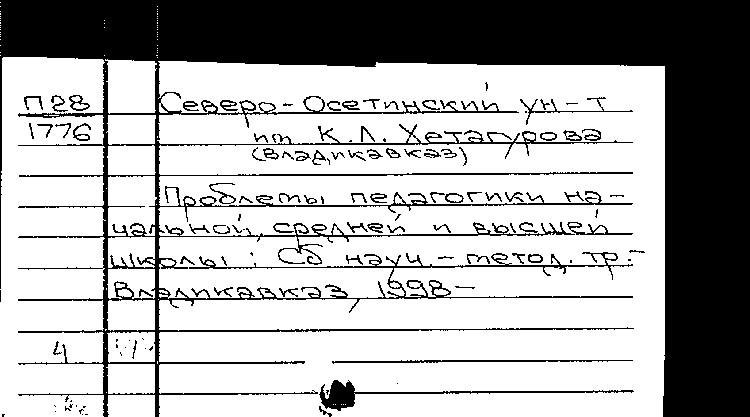 П28 Северо-Осетинский ун-т
1776 им К.Л. Хетагурова.
(Владикавказ)
Проблемы педагогики на-
чальной, средней и высшей
школы: Сб науч.-метод. тр.-
Владикавказ, 1998-
4